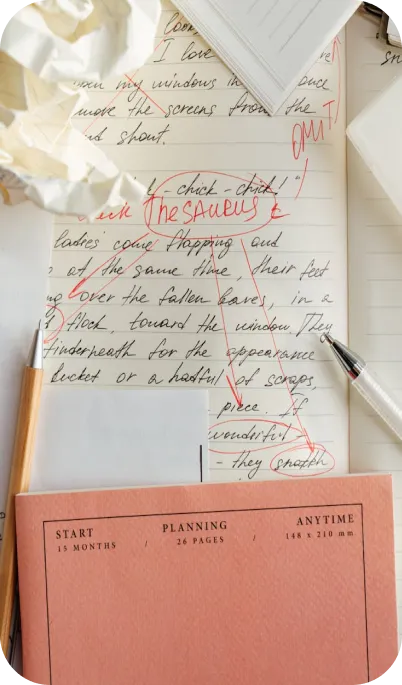 I love
my windows
move the screens from the
shout.
OMIT
-chick-chick!"
THESAURUS
ladies come flapping and
at the same time, their feet
over the fallen leaves, in a
flock, toward the window. They
underneath for the appearance
bucket or a hatful of scraps,
piece. If
wondriful -
- they snatch
START
15 MONTHS
/
PLANNING
26 PAGES
/
ANYTIME
148 x 210 mm